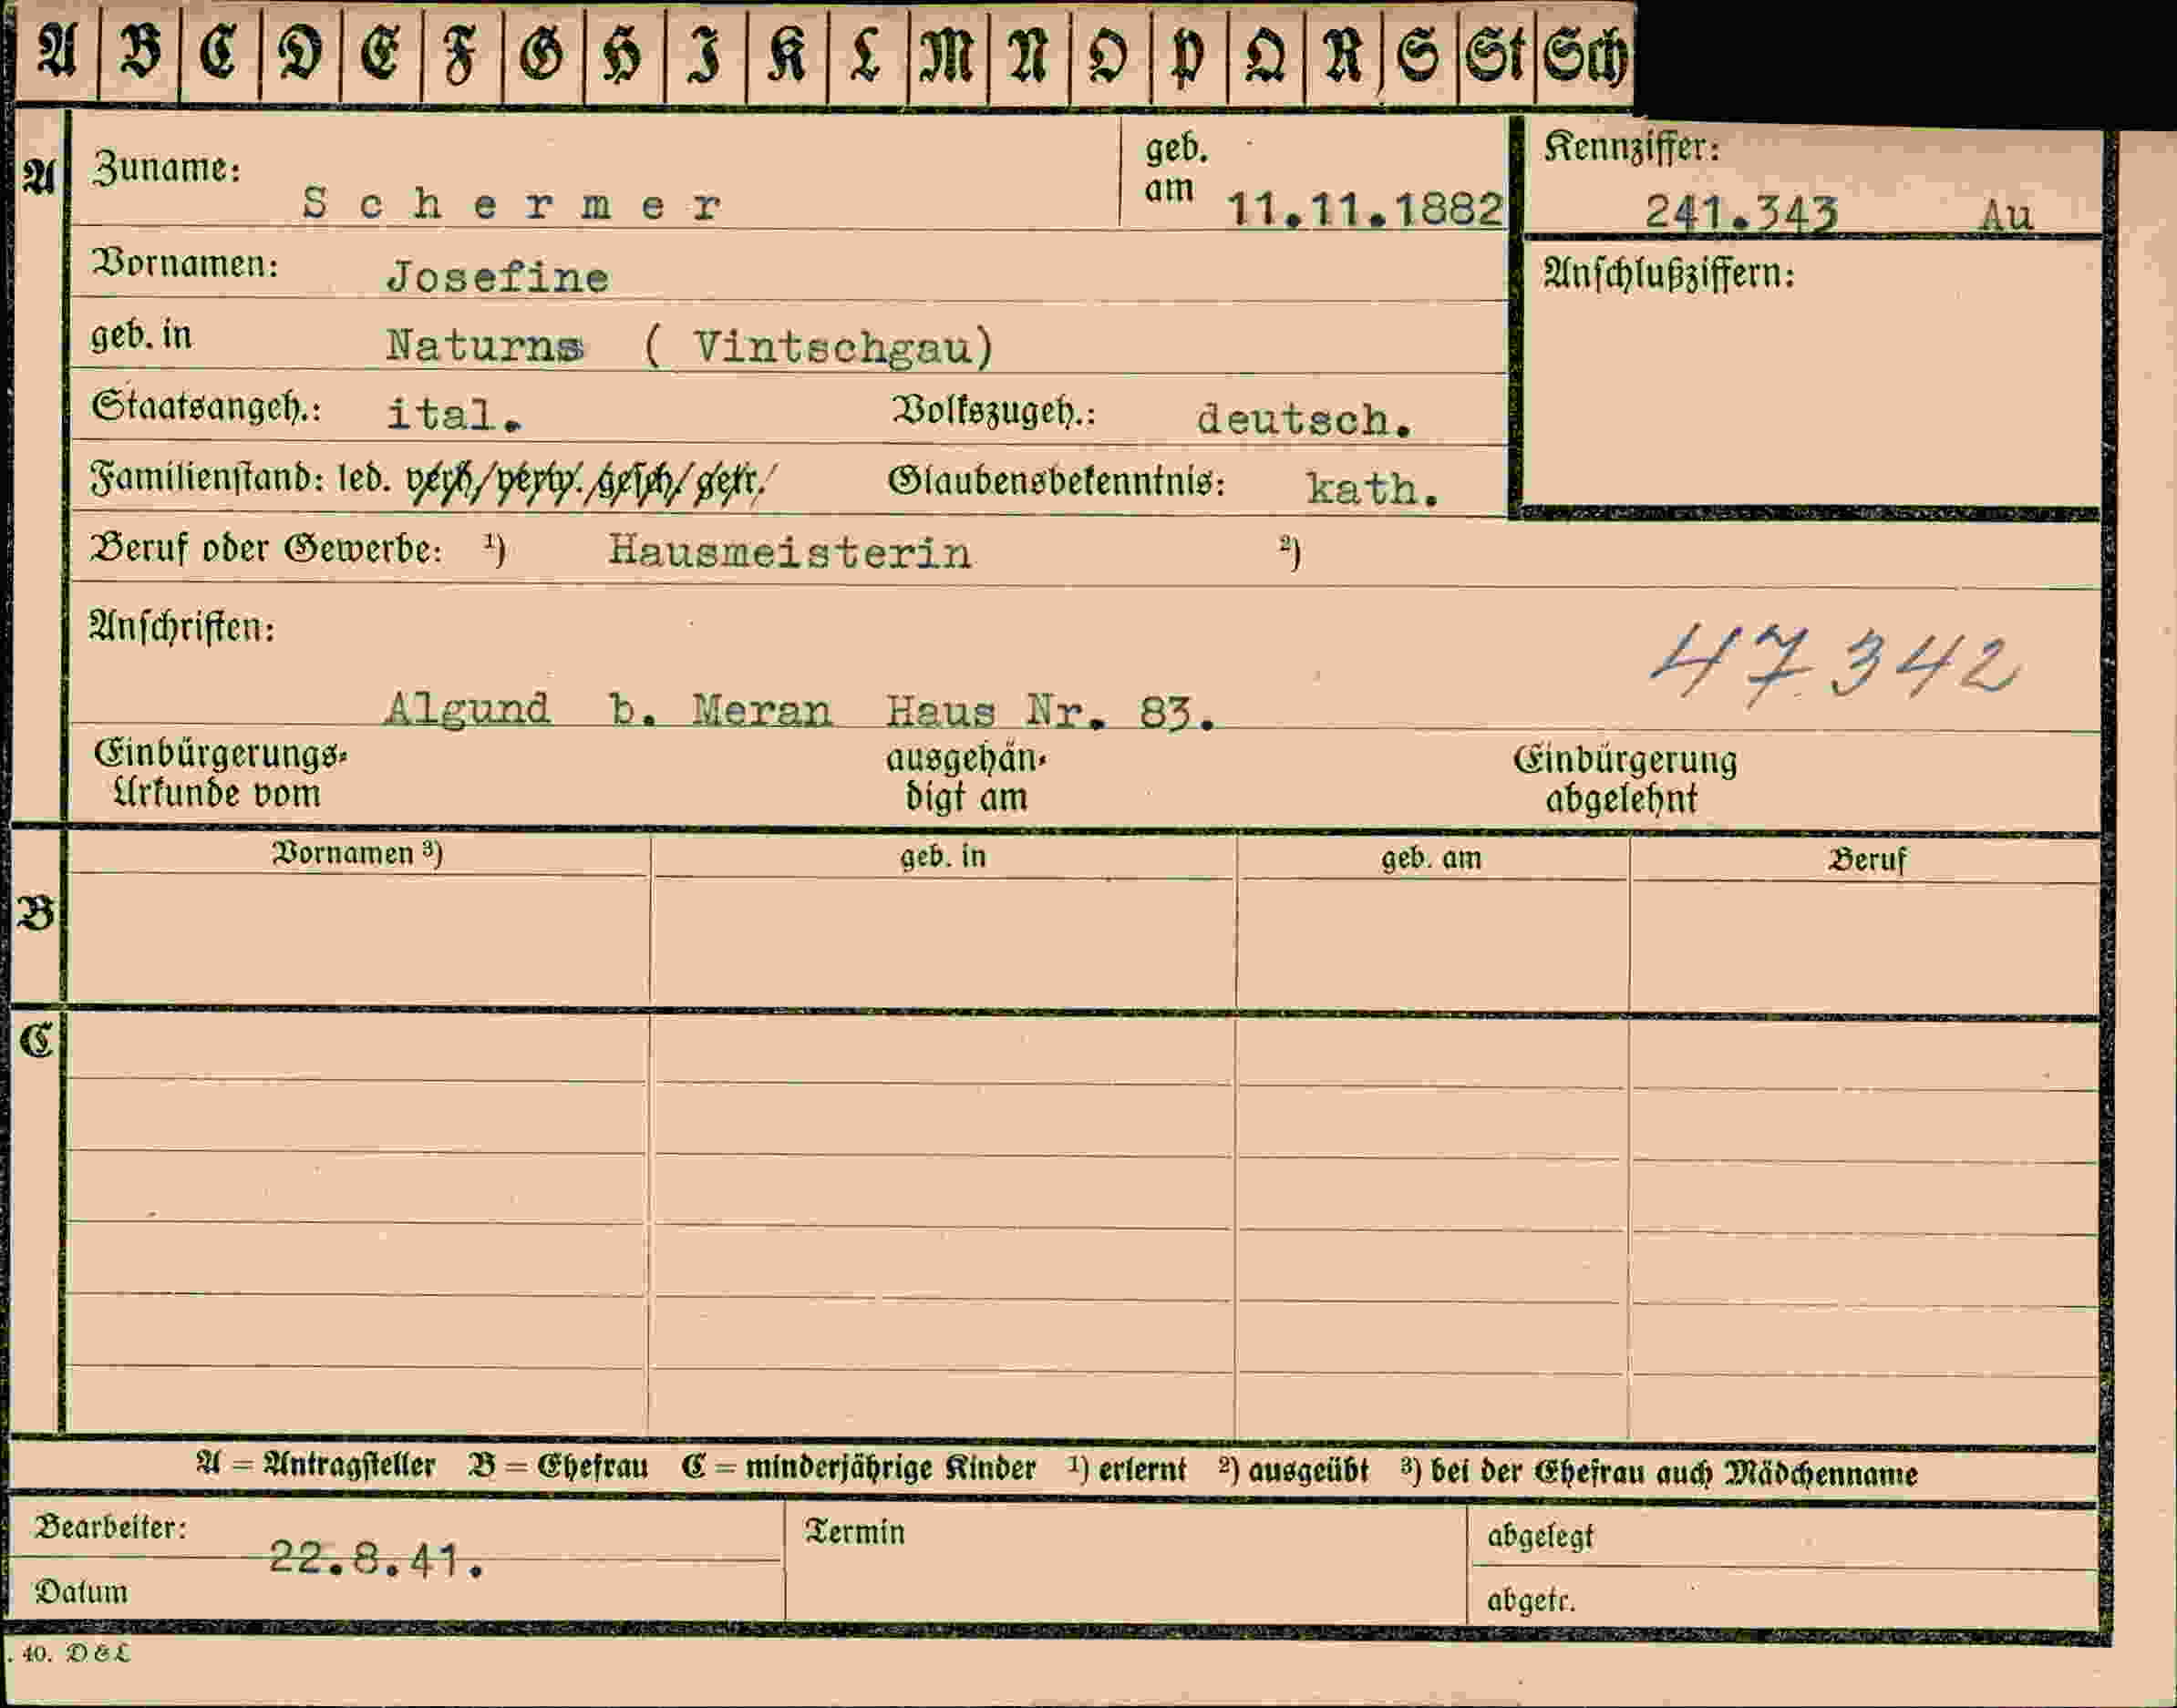 A B C D E F G H I K L M N O P Q R S St Sch
A Zuname: Schermer geb. am 11.11.1882 Kennziffer: 241.343 Au
Vornamen: Josefine Anschlußziffern:
geb. in Naturns ( Vintschgau)
Staatsangeh.: ital. Volkszugeh.: deutsch.
Familienstand: led. verh./verw./gesch./getr. Glaubensbekenntnis: kath.
Beruf oder Gewerbe: ¹) Hausmeisterin ²)
Anschriften: 47342
Algund b. Meran Haus Nr. 83.
Einbürgerungs- ausgehän- Einbürgerung
Urkunde vom digt am abgelehnt
Vornamen ³) geb. in geb. am Beruf
B
C
A = Antragsteller B = Ehefrau C = minderjährige Kinder ¹) erlernt ²) ausgeübt ³) bei der Ehefrau auch Mädchenname
Bearbeiter: Termin abgelegt
22.8.41.
Datum abgetr.
. 40. D & L